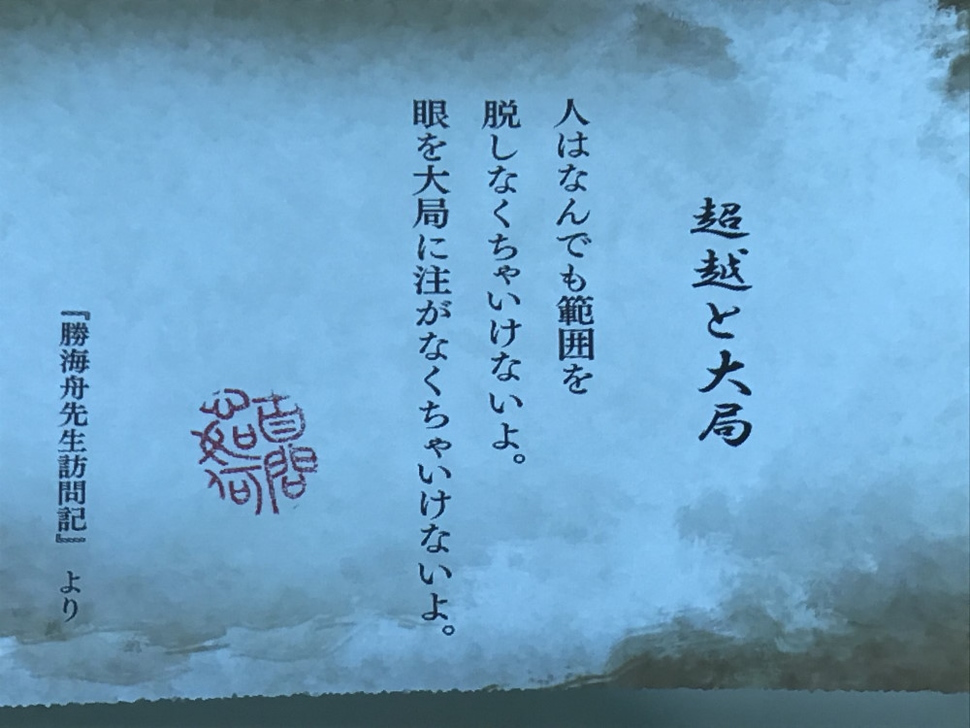 超越と大局
人はなんでも範囲を
脱しなくちゃいけないよ。
眼を大局に注がなくちゃいけないよ。
『勝海舟先生訪問記』 より